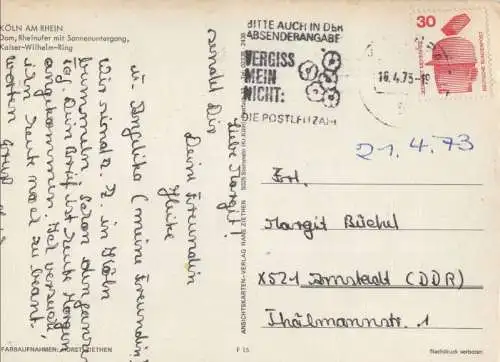 KÖLN AM RHEIN
Dom, Rheinufer mit Sonnenuntergang,
Kaiser-Wilhelm-Ring
BITTE AUCH IN DER
ABSENDERANGABE
VERGISS
MEIN
NICHT:
DIE POSTLEITZAHL
16.4.73-19
30
DEUTSCHE BUNDESPOST
21.4.73
Liebe Margit!
u. Angelika (meine Freundin)
wir sind z. Z. in Köln
bummeln schon den ganzen
Tag. Dein Brief ist heute Morgen
angekommen. Ich versuche
ihn heute noch zu beant.
worten
sendet Dir
Deine Freundin
Heike
Frl.
Margit Büchel
X521 Arnstadt (DDR)
Thälmannstr. 1
ANSICHTSKARTEN-VERLAG HANS ZIETHEN
FARBAUFNAHMEN: HORST ZIETHEN
F 15
Nachdruck verboten